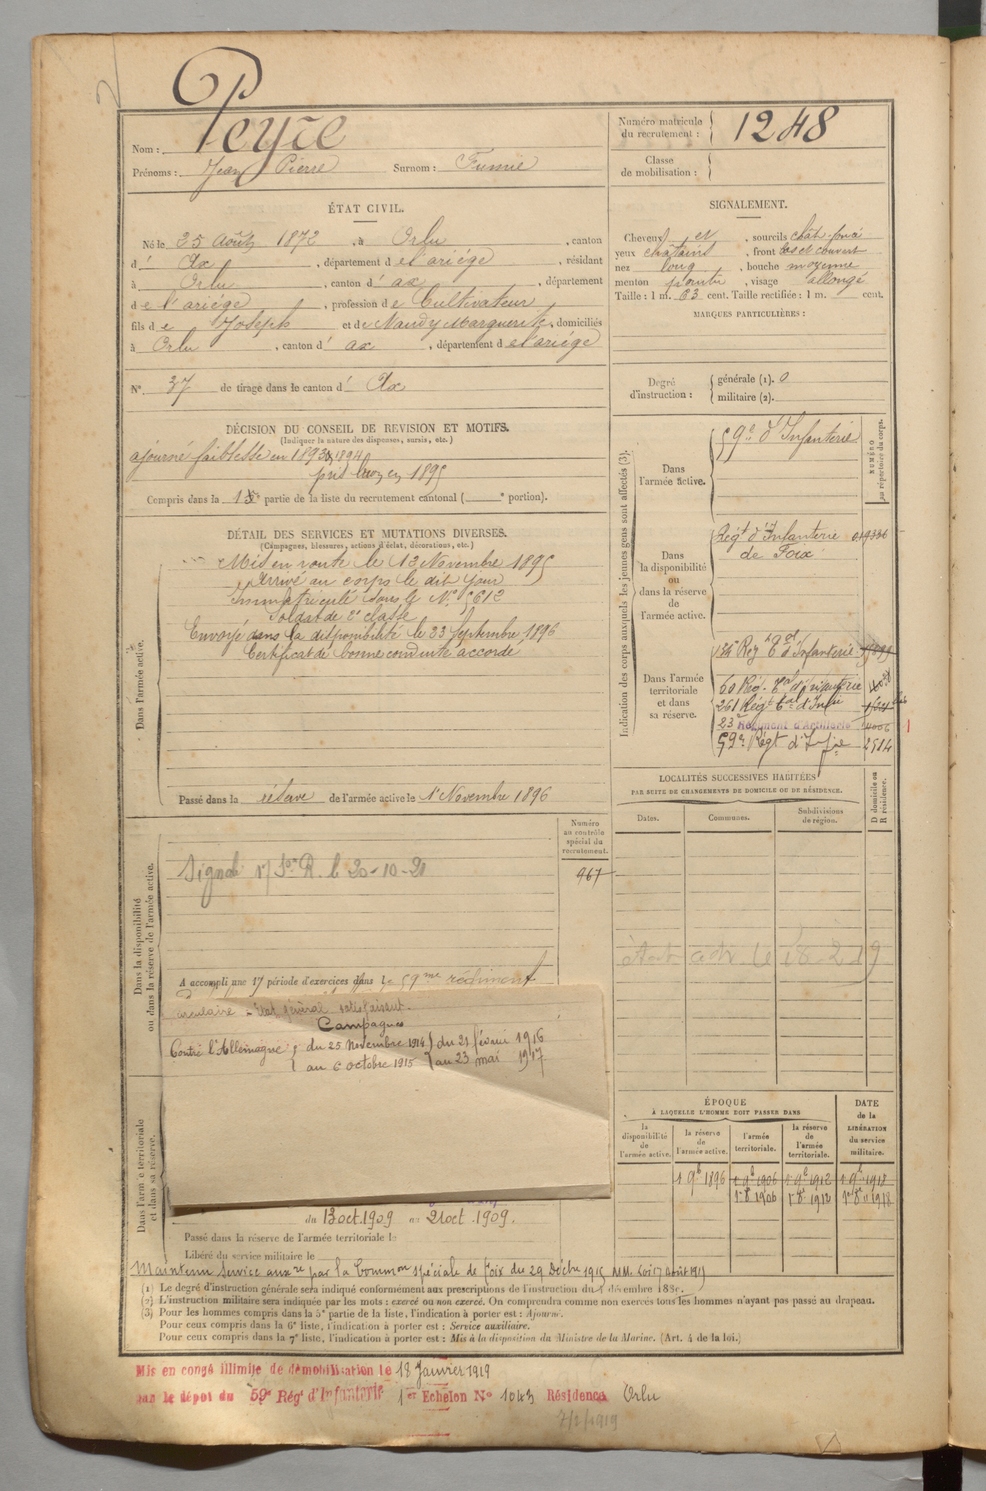 Peyre
Nom :
Prénoms : Jean Pierre Surnom : Fumié
Numéro matricule du recrutement : 1248
Classe de mobilisation :
ÉTAT CIVIL.
Né le 25 Août 1872, à Orlu, canton
d' Ax, département de l'ariége, résidant
à Orlu, canton d' ax, département
de l'ariége, profession de Cultivateur
fils de Joseph et de Naudy Marguerite, domiciliés
à Orlu, canton d' ax, département de l'ariége
N° 37 de tirage dans le canton d' Ax
SIGNALEMENT.
Cheveux et, sourcils chât. foncé
yeux chatains, front bas et couvert
nez long, bouche moyenne
menton pointu, visage allongé
Taille : 1 m. 63 cent. Taille rectifiée : 1 m. cent.
MARQUES PARTICULIÈRES :
Degré d'instruction : générale (1). 0
militaire (2).
DÉCISION DU CONSEIL DE REVISION ET MOTIFS.
(Indiquer la nature des dispenses, sursis, etc.)
ajourné faiblesse en 1893, 1894
pris bon en 1895
Compris dans la 1e partie de la liste du recrutement cantonal ( e portion).
DÉTAIL DES SERVICES ET MUTATIONS DIVERSES.
(Campagnes, blessures, actions d'éclat, décorations, etc.)
Dans l'armée active.
Mis en route le 13 Novembre 1895
Arrivé au corps le dit jour
Immatriculé sous le N° 5612
Soldat de 2e classe
Envoyé dans la disponibilité le 23 Septembre 1896
Certificat de bonne conduite accordé
Passé dans la réserve de l'armée active le 1er Novembre 1896
Indication des corps auxquels les jeunes gens sont affectés (3).
NUMÉRO au répertoire du corps.
Dans l'armée active. 59e d'Infanterie
Dans la disponibilité ou dans la réserve de l'armée active.
Régt d'Infanterie
de Foix
Dans l'armée territoriale et dans sa réserve.
Reg Tal d'Infanterie
60 Rég. Tal d'infanterie
261 Régt Tal d'Infie
23e Régiment d'Artillerie
59e Régt d'Infie 2514
LOCALITÉS SUCCESSIVES HABITÉES
PAR SUITE DE CHANGEMENTS DE DOMICILE OU DE RÉSIDENCE.
Dates. Communes. Subdivisions de région. D domicile ou R résidence.
Numéro au contrôle spécial du recrutement.
967
Dans la disponibilité ou dans la réserve de l'armée active.
20-10-20
A accompli une 1re période d'exercices dans le 59me régiment
circulaire - Etat général satisfaisant.
Campagnes
Contre l'Allemagne du 25 Novembre 1914 du 21 février 1916
au 6 octobre 1915 au 23 mai 1917
Dans l'armée territoriale et dans sa réserve.
du 13 oct. 1909 au 21 oct. 1909.
Passé dans la réserve de l'armée territoriale le
Libéré du service militaire le
ÉPOQUE
À LAQUELLE L'HOMME DOIT PASSER DANS
la disponibilité de l'armée active. la réserve de l'armée active. l'armée territoriale. la réserve de l'armée territoriale.
DATE de la LIBÉRATION du service militaire.
1 9bre 1896 1 9bre 1906 1 9bre 1912 1 9bre 1918
Maintenu Service auxre par la Common spéciale de Foix du 29 Décbre 1915 Loi 17 Août 1915
(1) Le degré d'instruction générale sera indiqué conformément aux prescriptions de l'instruction du 4 décembre 1889.
(2) L'instruction militaire sera indiquée par les mots : exercé ou non exercé. On comprendra comme non exercés tous les hommes n'ayant pas passé au drapeau.
(3) Pour les hommes compris dans la 5e partie de la liste, l'indication à porter est : Ajourné.
Pour ceux compris dans la 6e liste, l'indication à porter est : Service auxiliaire.
Pour ceux compris dans la 7e liste, l'indication à porter est : Mis à la disposition du Ministre de la Marine. (Art. 4 de la loi.)
Mis en congé illimité de démobilisation le 18 Janvier 1919
par le dépôt du 59e Régt d'Infanterie 1er Echelon N° 1043 Résidence Orlu
7/2/1919